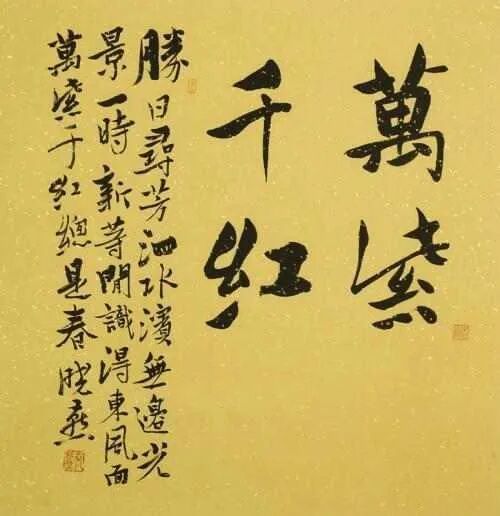 萬紫
千红
勝日尋芳泗水濱無邊光
景一時新等閒識得東風面
萬紫千红總是春晓燕